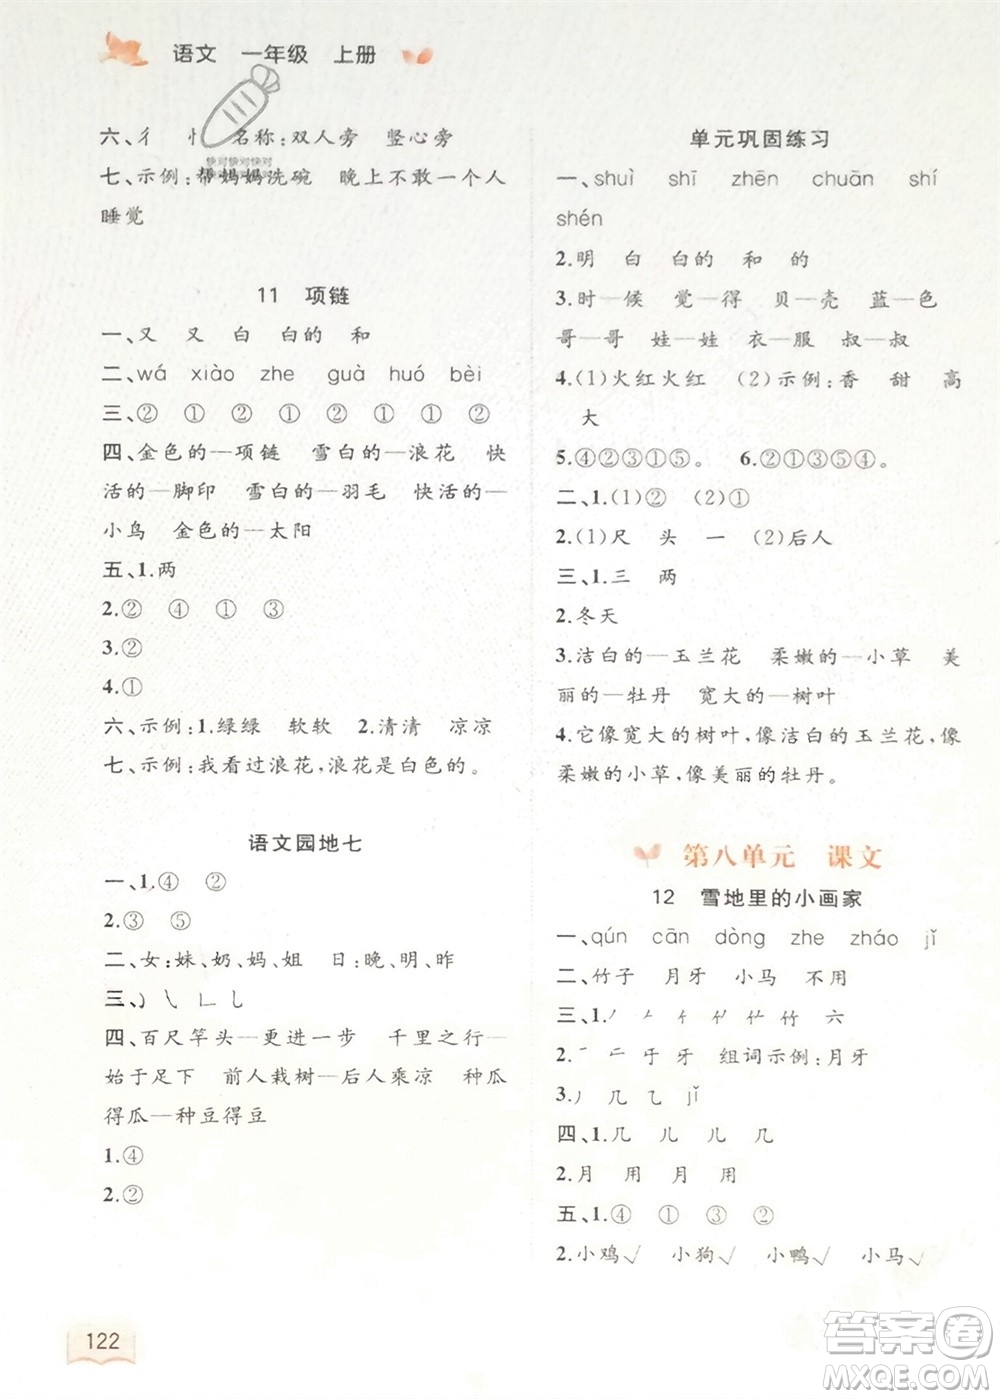 语文 一年级 上册
六、彳 忄 名称:双人旁 竖心旁
七、示例:帮妈妈洗碗 晚上不敢一个人
睡觉
11 项链
一、又 又 白 白的 和
二、wá xiào zhe guà huó bèi
三、② ① ② ① ② ① ① ②
四、金色的—项链 雪白的—浪花 快
活的—脚印 雪白的—羽毛 快活的—
小鸟 金色的—太阳
五、1.两
2.② ④ ① ③
3.②
4.①
六、示例:1.绿绿 软软 2.清清 凉凉
七、示例:我看过浪花,浪花是白色的。
语文园地七
一、1.④ ②
2.③ ⑤
二、女:妹、奶、妈、姐 日:晚、明、昨
三、丿 ㇏ ㇗ ㇄
四、百尺竿头—更进一步 千里之行—
始于足下 前人栽树—后人乘凉 种瓜
得瓜—种豆得豆
1.④
2.②
122
单元巩固练习
一、shuì shī zhēn chuān shí
shén
2.明 白 白的 和 的
3.时—候 觉—得 贝—壳 蓝—色
哥—哥 娃—娃 衣—服 叔—叔
4.(1)火红火红 (2)示例:香 甜 高
大
5.④②③①⑤。 6.②①③⑤④。
二、1.(1)② (2)①
2.(1)尺 头 一 (2)后人
三、1.三 两
2.冬天
3.洁白的—玉兰花 柔嫩的—小草 美
丽的—牡丹 宽大的—树叶
4.它像宽大的树叶,像洁白的玉兰花,像
柔嫩的小草,像美丽的牡丹。
第八单元 课文
12 雪地里的小画家
一、qún cān dòng zhe zháo jǐ
二、竹子 月牙 小马 不用
三、1.丿 𠂉 竹 六
2. 二 于 牙 组词示例:月牙
3.丿 几 乙 jǐ
四、1.几 儿 儿 几
2.月 用 月 用
五、1.④ ① ③ ②
2.小鸡√ 小狗√ 小鸭√ 小马√
快对快对快对
答案圈
MXQE.COM